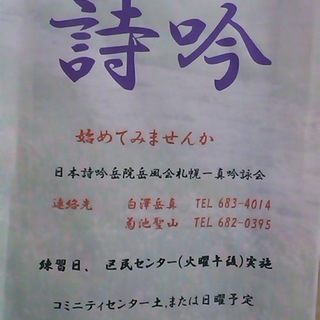 詩吟
始めてみませんか
日本詩吟岳院岳風会札幌一真吟詠会
連絡先 白澤岳真 TEL 683-4014
菊池聖山 TEL 682-0395
練習日、区民センター(火曜午後)実施
コミニティセンター土,または日曜予定